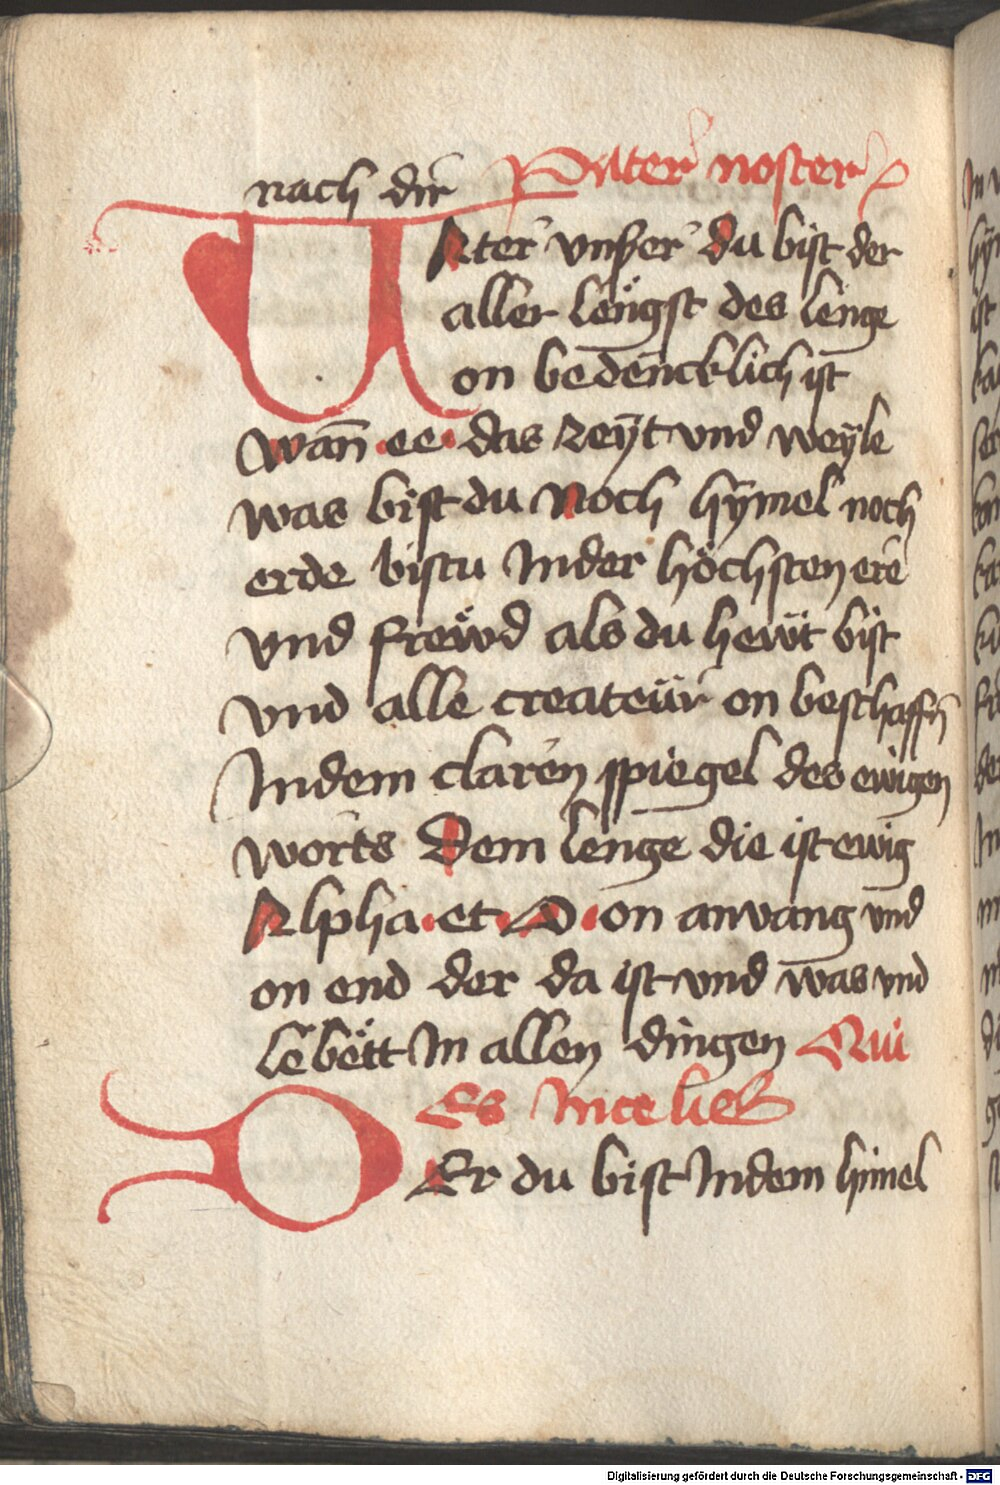 nach dir Pater noster
VAter vnser du bist der
aller lengst des lenge
on bedencklich ist
wan̄ ee das zeÿt vnd weÿle
was bist du noch hÿmel noch
erde bistu In der höchsten ere
vnd frewd als du hewt bist
vnd alle createür on beschaffn̄
In dem claren spiegel des ewigen
worts Dem lenge die ist ewig
Alpha et O on anvang vnd
on end der da ist vnd was vnd
lebett In allen dingen Qui
Es In celis
DEr du bist In dem himel
Digitalisierung gefördert durch die Deutsche Forschungsgemeinschaft - DFG